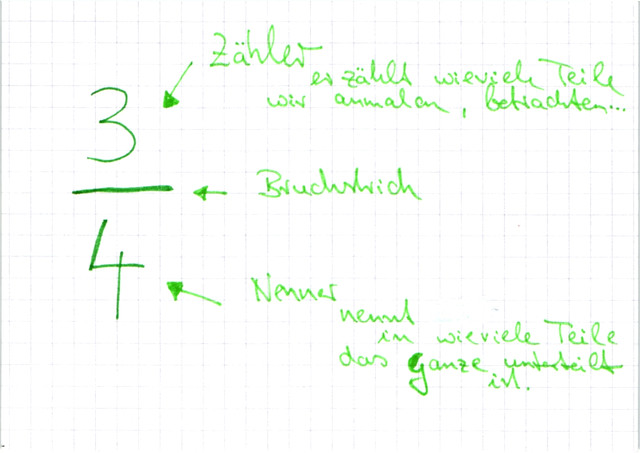 Zähler
er zählt wieviele Teile
wir anmalen, betrachten...
3
Bruchstrich
4
Nenner
nennt
in wieviele Teile
das ganze unterteilt
ist.